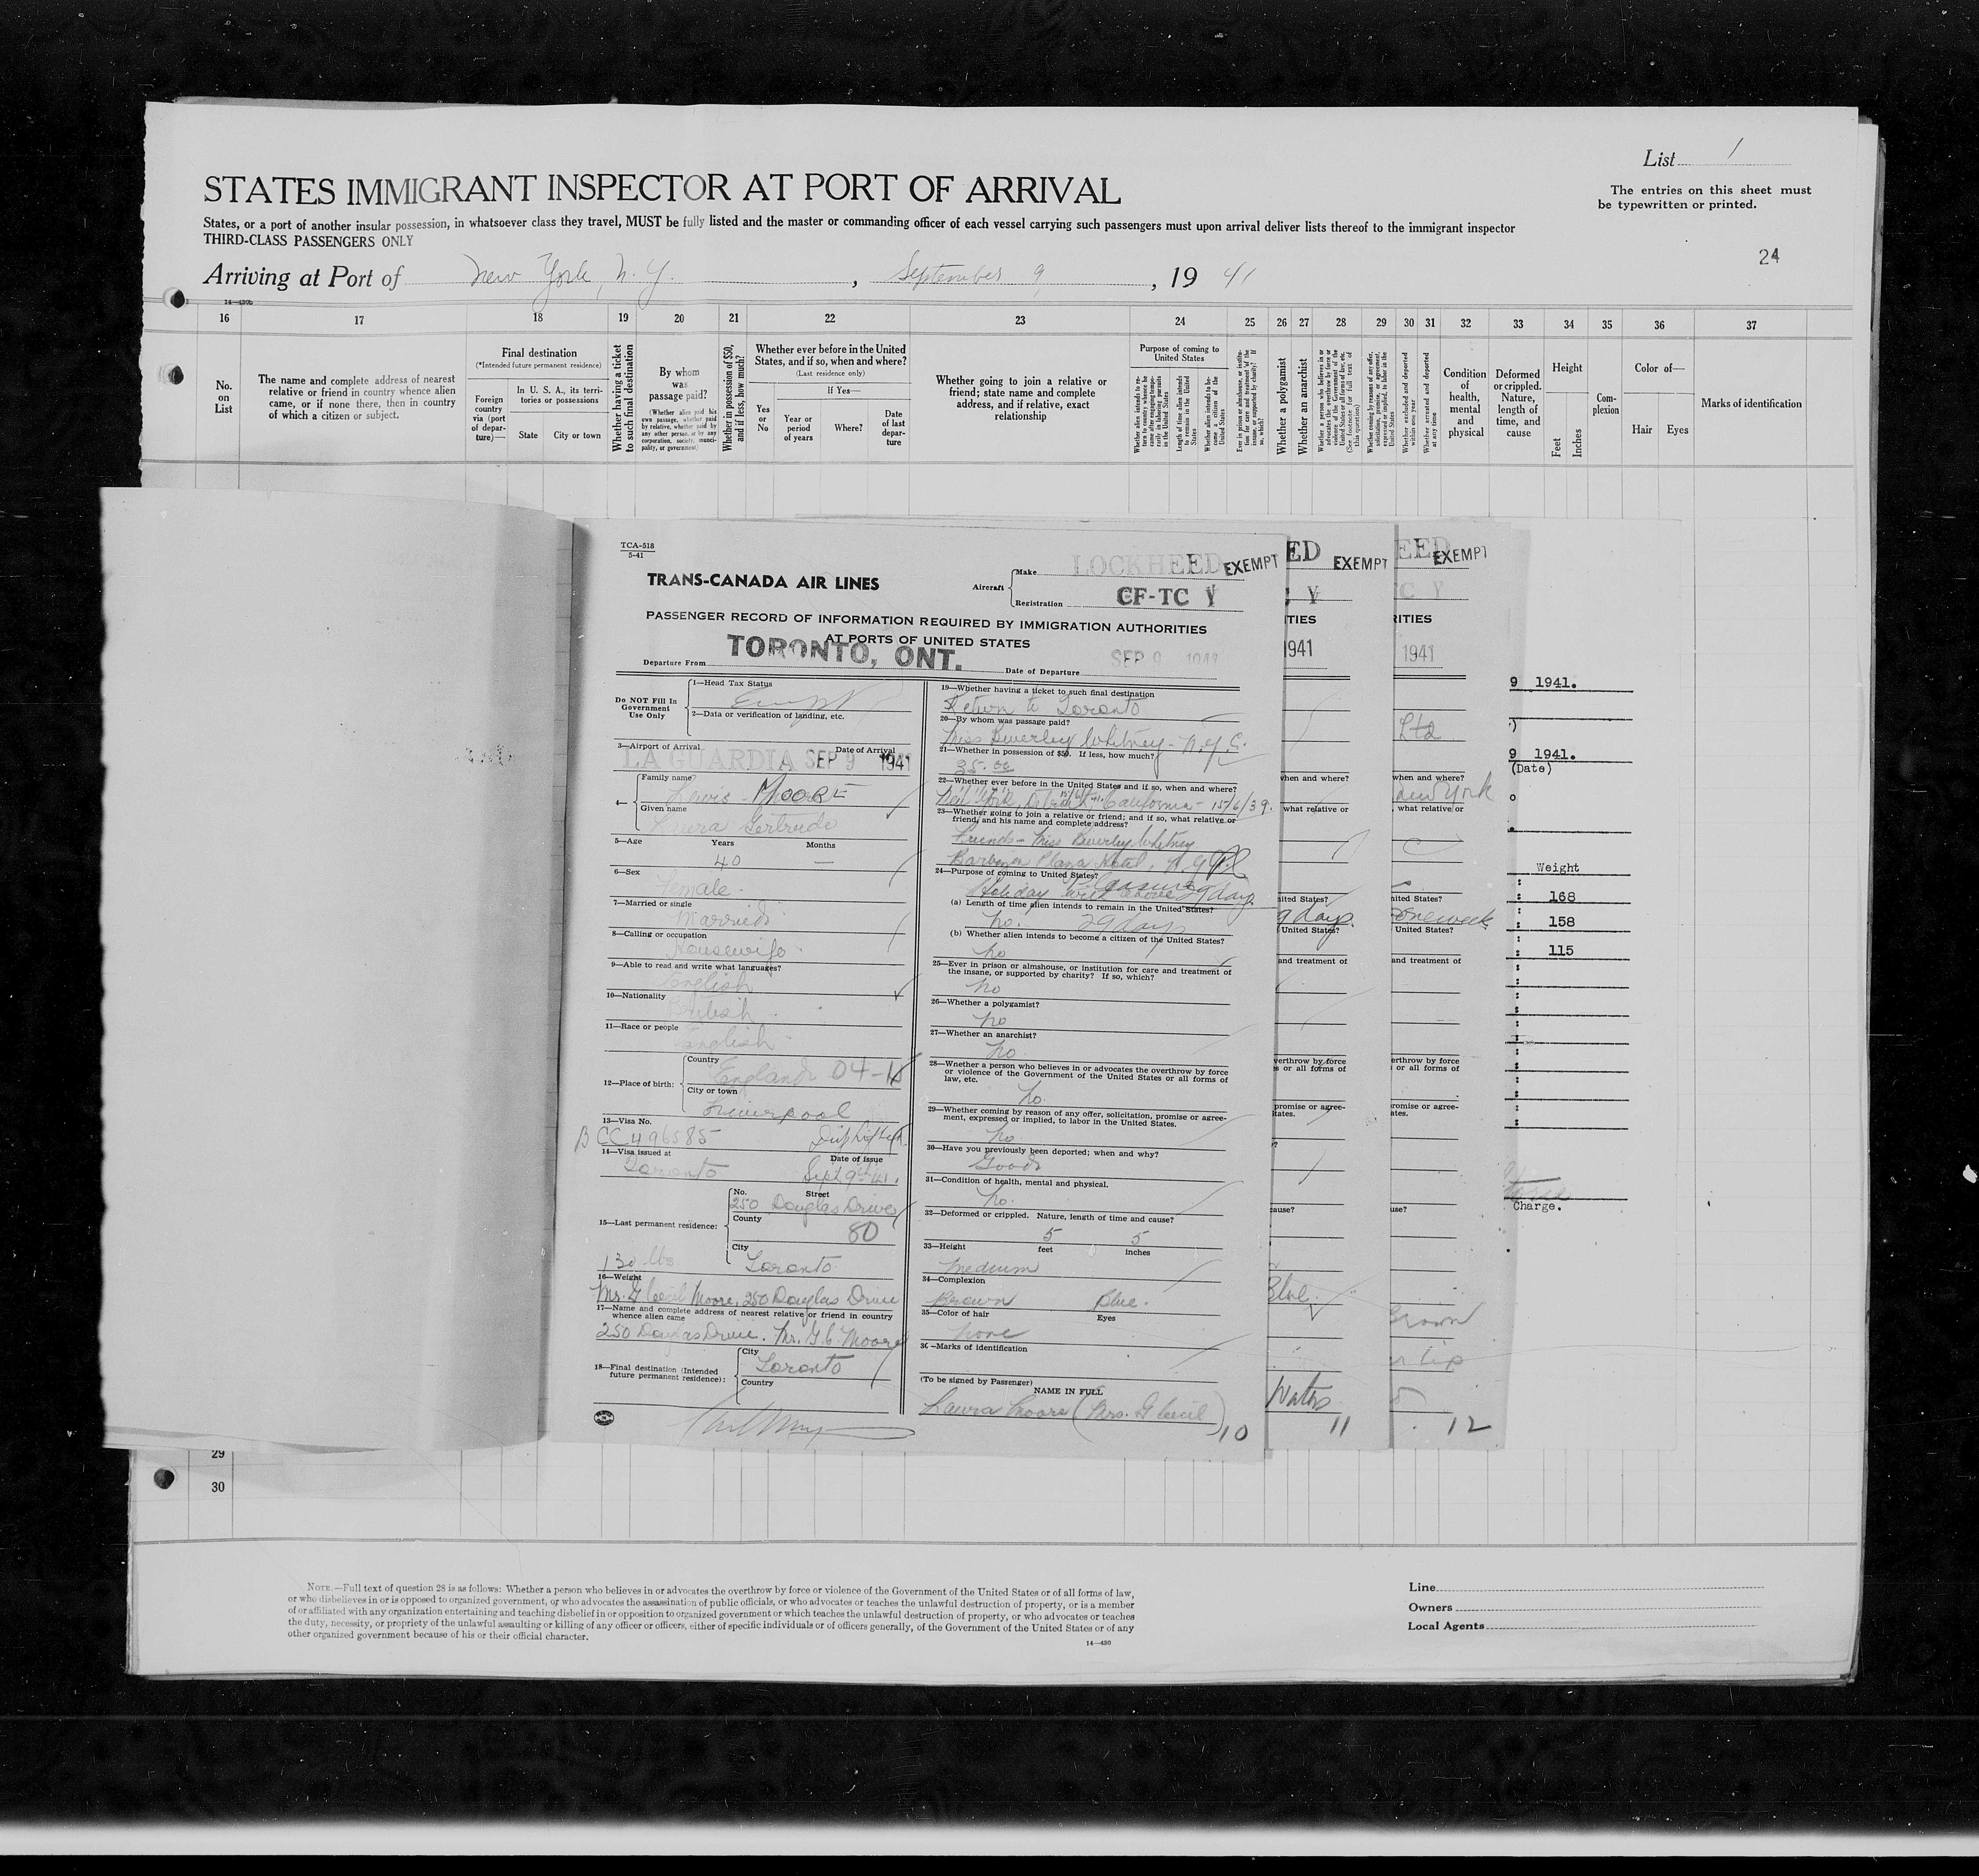 List 1
The entries on this sheet must
be typewritten or printed.
24
STATES IMMIGRANT INSPECTOR AT PORT OF ARRIVAL
States, or a port of another insular possession, in whatsoever class they travel, MUST be fully listed and the master or commanding officer of each vessel carrying such passengers must upon arrival deliver lists thereof to the immigrant inspector
THIRD-CLASS PASSENGERS ONLY
Arriving at Port of New York, N.Y. , September 9, , 19 41
14—430b
16 17 18 19 20 21 22 23 24 25 26 27 28 29 30 31 32 33 34 35 36 37
No. on List
The name and complete address of nearest
relative or friend in country whence alien
came, or if none there, then in country
of which a citizen or subject.
Final destination
(*Intended future permanent residence)
Foreign country via (port of departure)—
In U. S. A., its territories or possessions
State City or town
Whether having a ticket to such final destination
By whom was passage paid?
Whether in possession of $50, and if less, how much?
Whether ever before in the United
States, and if so, when and where?
(Last residence only)
Yes or No
If Yes—
Year or period of years
Where?
Date of last departure
Whether going to join a relative or
friend; state name and complete
address, and if relative, exact
relationship
Purpose of coming to
United States
Whether a polygamist
Whether an anarchist
Condition of health, mental and physical
Deformed or crippled. Nature, length of time, and cause
Height
Feet Inches
Complexion
Color of—
Hair Eyes
Marks of identification
TCA-518
5-41
TRANS-CANADA AIR LINES
Aircraft
Make LOCKHEED EXEMPT
Registration CF-TC Y
PASSENGER RECORD OF INFORMATION REQUIRED BY IMMIGRATION AUTHORITIES
AT PORTS OF UNITED STATES
Departure From TORONTO, ONT. Date of Departure SEP 9 1941
Do NOT Fill In
Government
Use Only
1—Head Tax Status
2—Data or verification of landing, etc.
3—Airport of Arrival Date of Arrival
LA GUARDIA SEP 9 1941
4—
Family name Lewis MOORE
Given name Laura Gertrude
5—Age Years Months
40 —
6—Sex
Female
7—Married or single
Married
8—Calling or occupation
Housewife
9—Able to read and write what languages?
English
10—Nationality
British
11—Race or people
English
12—Place of birth:
Country
England 04-
City or town
Liverpool
13—Visa No.
B CC 496585
14—Visa issued at Date of issue
Toronto Sept 9th 41.
15—Last permanent residence:
No. Street
250 Douglas Drive
County
80
City
Toronto
130 lbs
16—Weight
Mr. G Cecil Moore, 250 Douglas Drive
17—Name and complete address of nearest relative or friend in country
whence alien came
250 Douglas Drive. Mr. G.C. Moore
18—Final destination (Intended
future permanent residence):
City
Toronto
Country
19—Whether having a ticket to such final destination
Return to Toronto
20—By whom was passage paid?
Miss Beverley Whitney - N.Y.C.
21—Whether in possession of $50. If less, how much?
35.00
22—Whether ever before in the United States and if so, when and where?
New York, Detroit, California - 15/6/39.
23—Whether going to join a relative or friend; and if so, what relative or
friend, and his name and complete address?
Friend - Miss Beverley Whitney
Barbizon Plaza Hotel, N.Y.
24—Purpose of coming to United States?
Pleasure
Holiday 29 days
(a) Length of time alien intends to remain in the United States?
No. 29 days
(b) Whether alien intends to become a citizen of the United States?
No
25—Ever in prison or almshouse, or institution for care and treatment of
the insane, or supported by charity? If so, which?
No
26—Whether a polygamist?
No
27—Whether an anarchist?
No.
28—Whether a person who believes in or advocates the overthrow by force
or violence of the Government of the United States or all forms of
law, etc.
No.
29—Whether coming by reason of any offer, solicitation, promise or agree-
ment, expressed or implied, to labor in the United States.
No.
30—Have you previously been deported; when and why?
Good
31—Condition of health, mental and physical.
No.
32—Deformed or crippled. Nature, length of time and cause?
5 5
33—Height feet inches
Medium
34—Complexion
Brown Blue.
35—Color of hair Eyes
None
36—Marks of identification
(To be signed by Passenger)
NAME IN FULL
Laura Moore (Mrs. G Cecil) 10
ED EXEMPT
Y
TIES
1941
when and where?
what relative or
9 days.
United States?
and treatment of
verthrow by force
s or all forms of
promise or agree-
tates.
cause?
Blue.
11
EED EXEMPT
C Y
RITIES
1941
Ltd
when and where?
New York
, what relative or
nited States?
one week
United States?
and treatment of
erthrow by force
or all forms of
romise or agree-
ates.
use?
Brown
lip
12
9 1941.
9 1941.
(Date)
Weight
: 168
: 158
: 115
Charge.
29
30
NOTE.—Full text of question 28 is as follows: Whether a person who believes in or advocates the overthrow by force or violence of the Government of the United States or of all forms of law,
or who disbelieves in or is opposed to organized government, or who advocates the assassination of public officials, or who advocates or teaches the unlawful destruction of property, or is a member
of or affiliated with any organization entertaining and teaching disbelief in or opposition to organized government or which teaches the unlawful destruction of property, or who advocates or teaches
the duty, necessity, or propriety of the unlawful assaulting or killing of any officer or officers, either of specific individuals or of officers generally, of the Government of the United States or of any
other organized government because of his or their official character.
14—430
Line
Owners
Local Agents